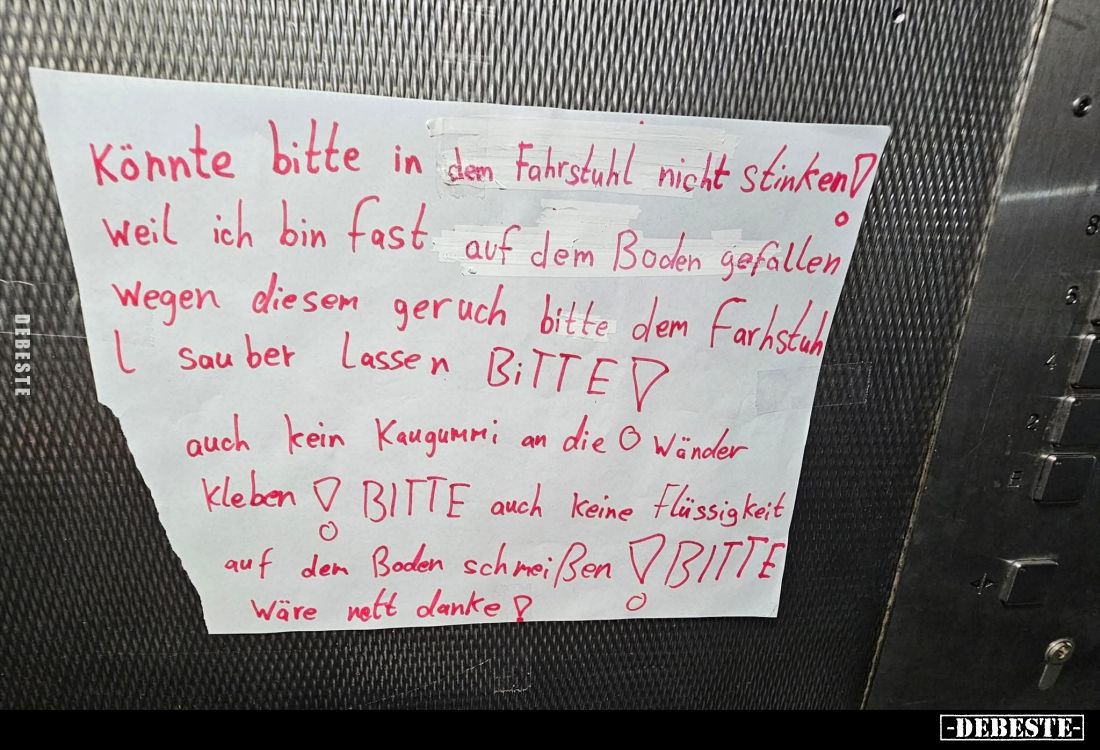 Könnte bitte in dem Fahrstuhl nicht stinken!
weil ich bin fast auf dem Boden gefallen
wegen diesem geruch bitte dem Farhstuh
l sauber lassen BiTTE!
auch kein Kaugummi an die Wänder
kleben! BITTE auch keine Flüssigkeit
auf dem Boden schmeißen! BITTE
wäre nett danke!
8
6
4
2
E
DEBESTE
-DEBESTE-